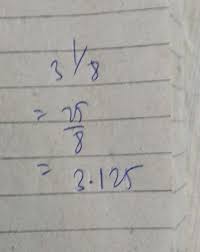 3 1/8
= 25/8
= 3.125